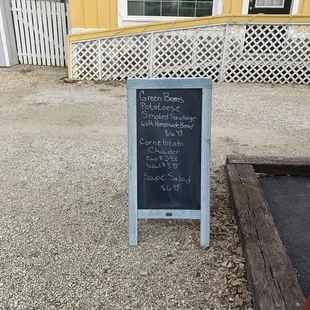 Green Beans
Potatoese
Smoked Sausage
with Handmade Bread
Corn & Potato
Chowder
Cup $
bowl $
Soup & Salad